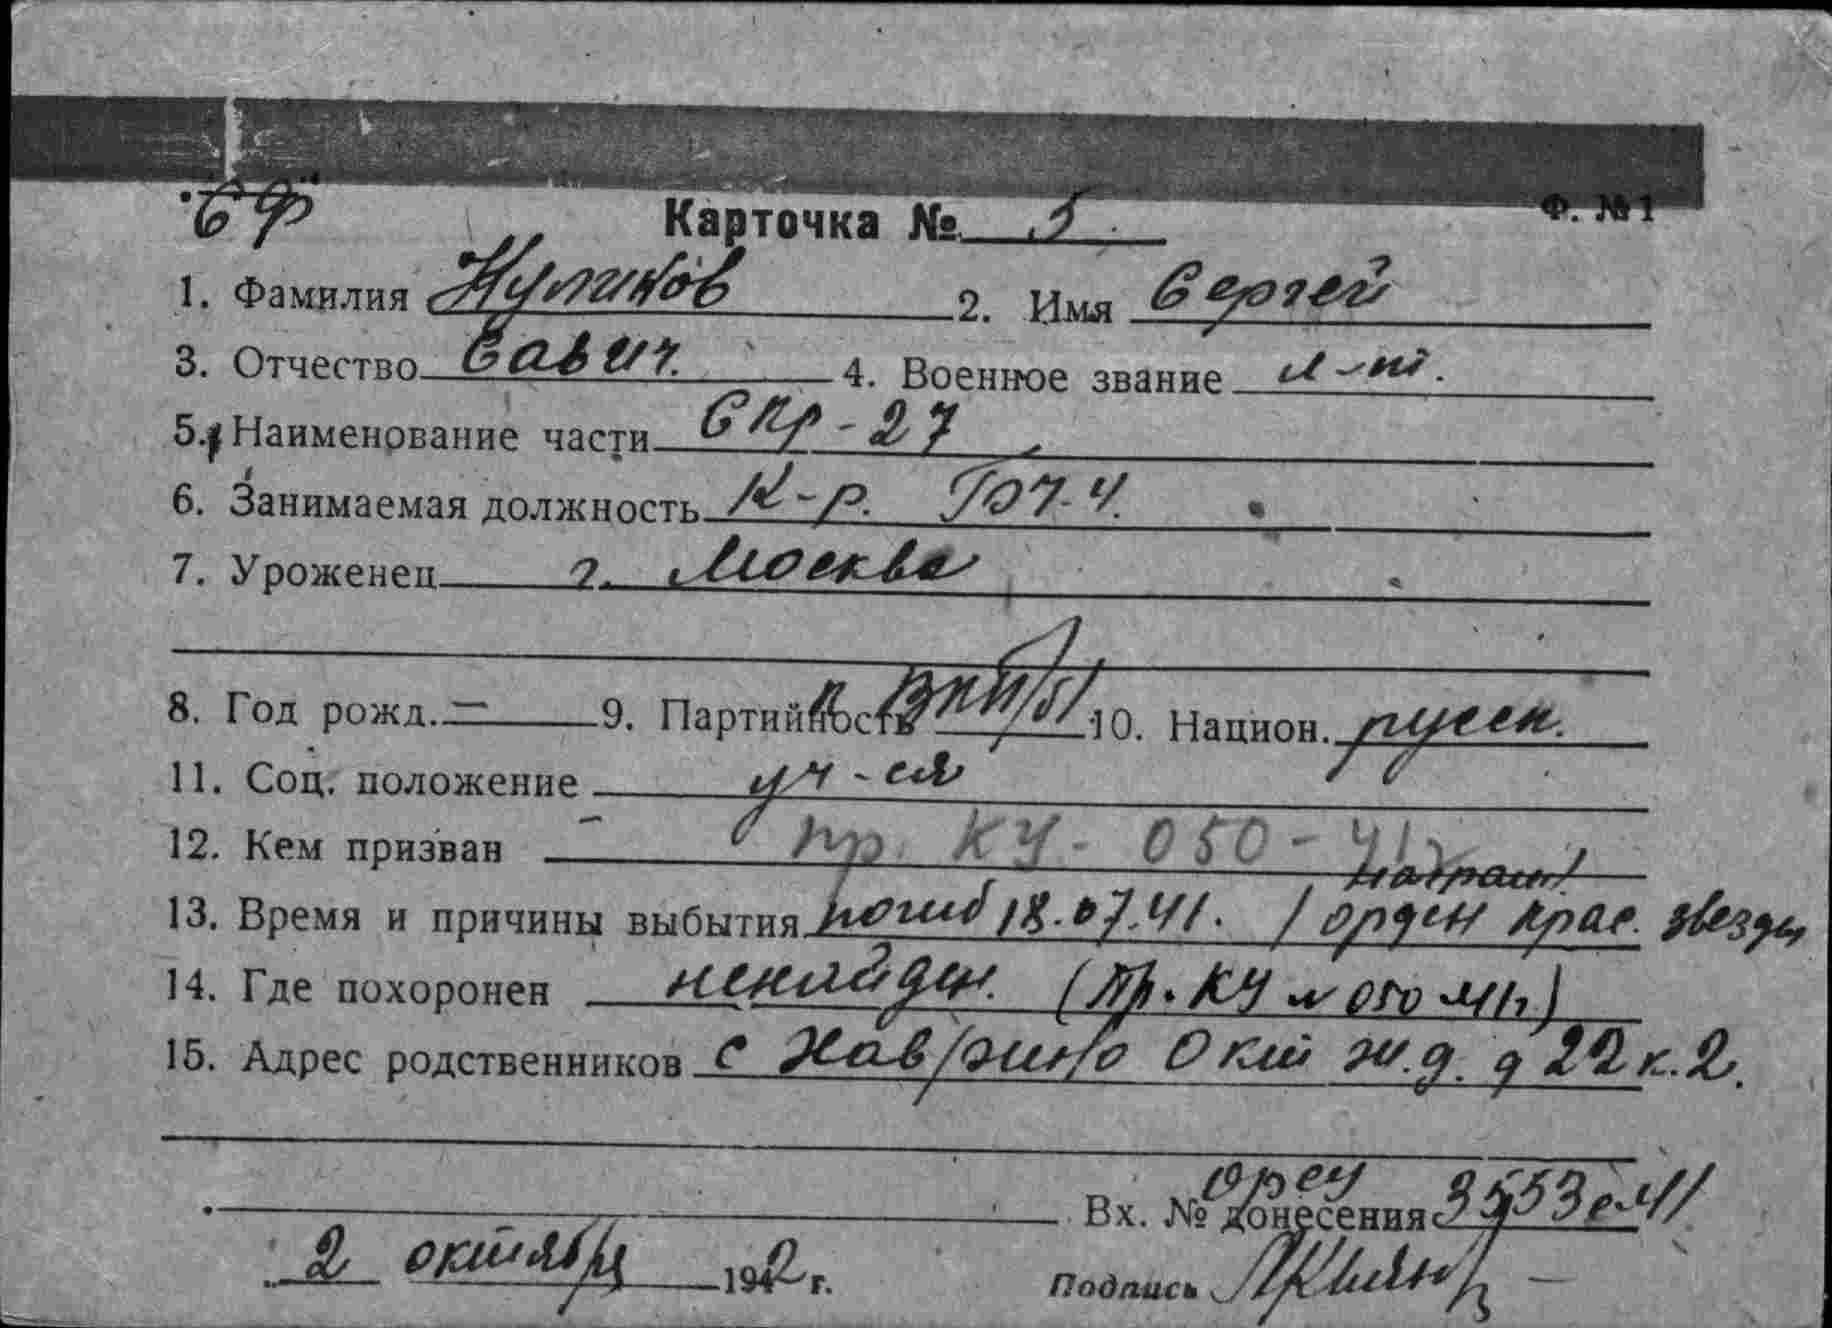 "СФ"
Ф. №1
Карточка № 5
1. Фамилия Куликов 2. Имя Сергей
3. Отчество Савич. 4. Военное звание л-нт.
5. Наименование части СКР-27
6. Занимаемая должность К-р. БЧ-4.
7. Уроженец г. Москва
8. Год рожд. — 9. Партийность ВКП/б/ 10. Национ. русск.
11. Соц. положение уч-ся
12. Кем призван — пр. КУ - 050 - 41г
награж!
13. Время и причины выбытия погиб 18.07.41. / орден крас. звезды
14. Где похоронен не найден. (Пр. КУ № 050 41г.)
15. Адрес родственников с Ховрино Окт ж.д. д 22 к. 2.
орсу
Вх. № донесения 3553с-41
2 октября 1942 г. Подпись